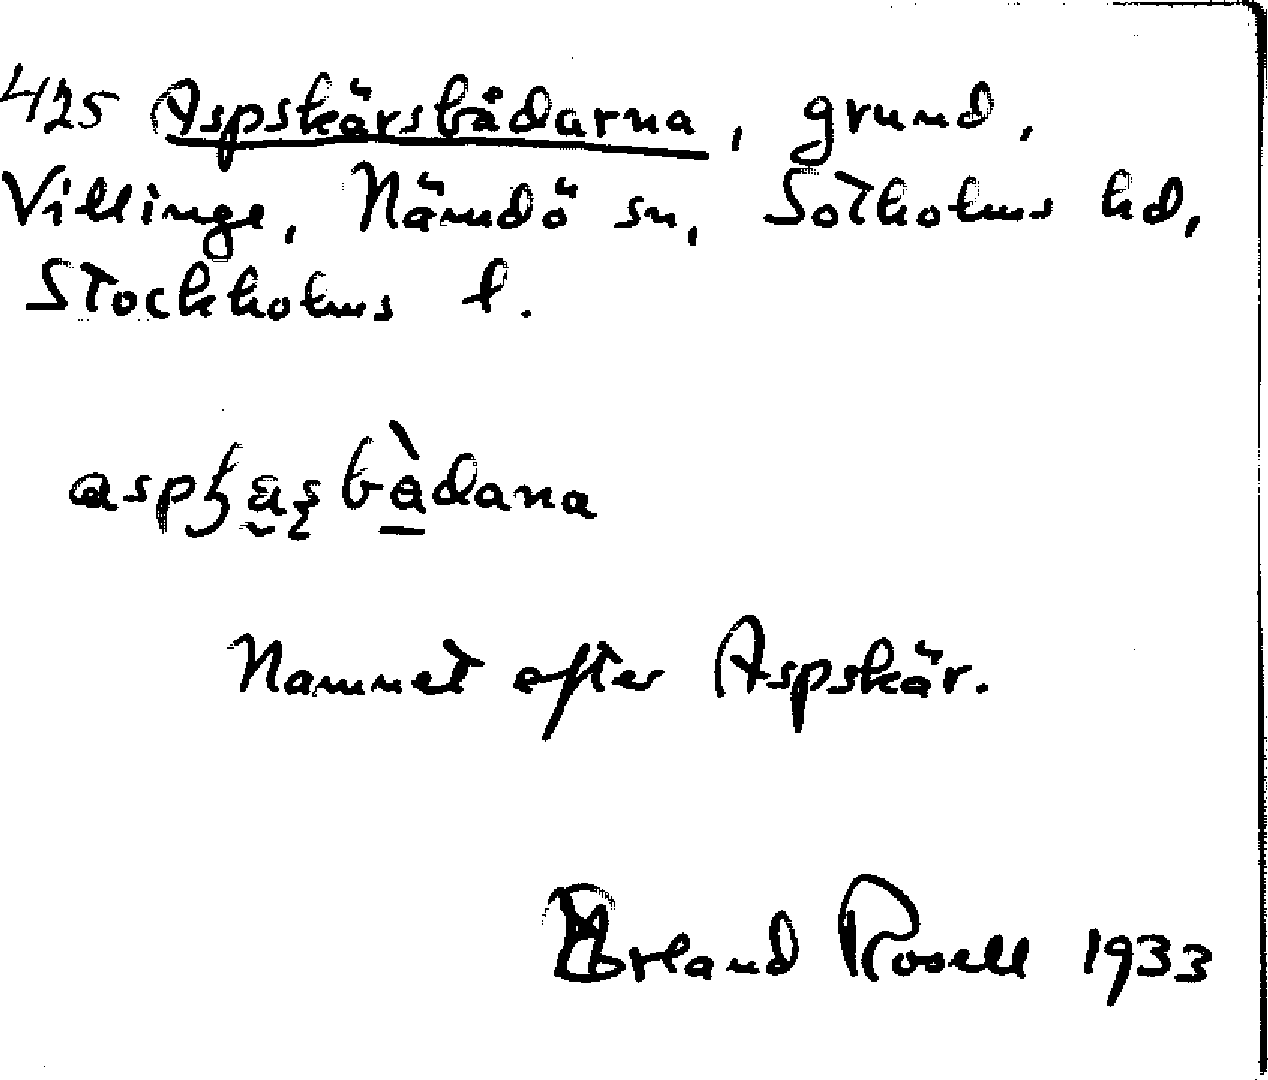 425 Aspskärsbådarna, grund,
Villinge, Nämdö sn, Sotholms hd,
Stockholms l.
Namnet efter Aspskär.
Erland Rosell 1933